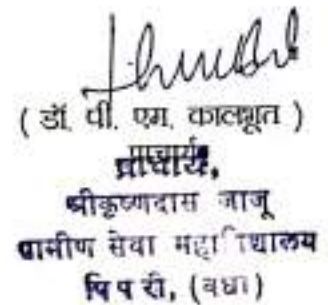 ( डॉ. पी. एम. कालभूत )
प्राचार्य,
श्रीकृष्णदास जाजू
ग्रामीण सेवा महाविद्यालय
पिपरी, (वर्धा)